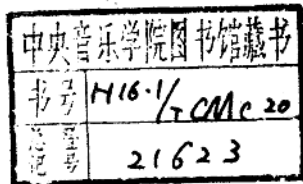 中央音乐学院图书馆藏书
书号 H16.1/TCMC20
总登记号 21623